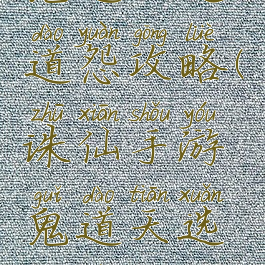 dào yuàn gōng lüè
道怨攻略(
zhū xiān shǒu yóu
诛仙手游
guǐ dào tiān xuǎn
鬼道天选